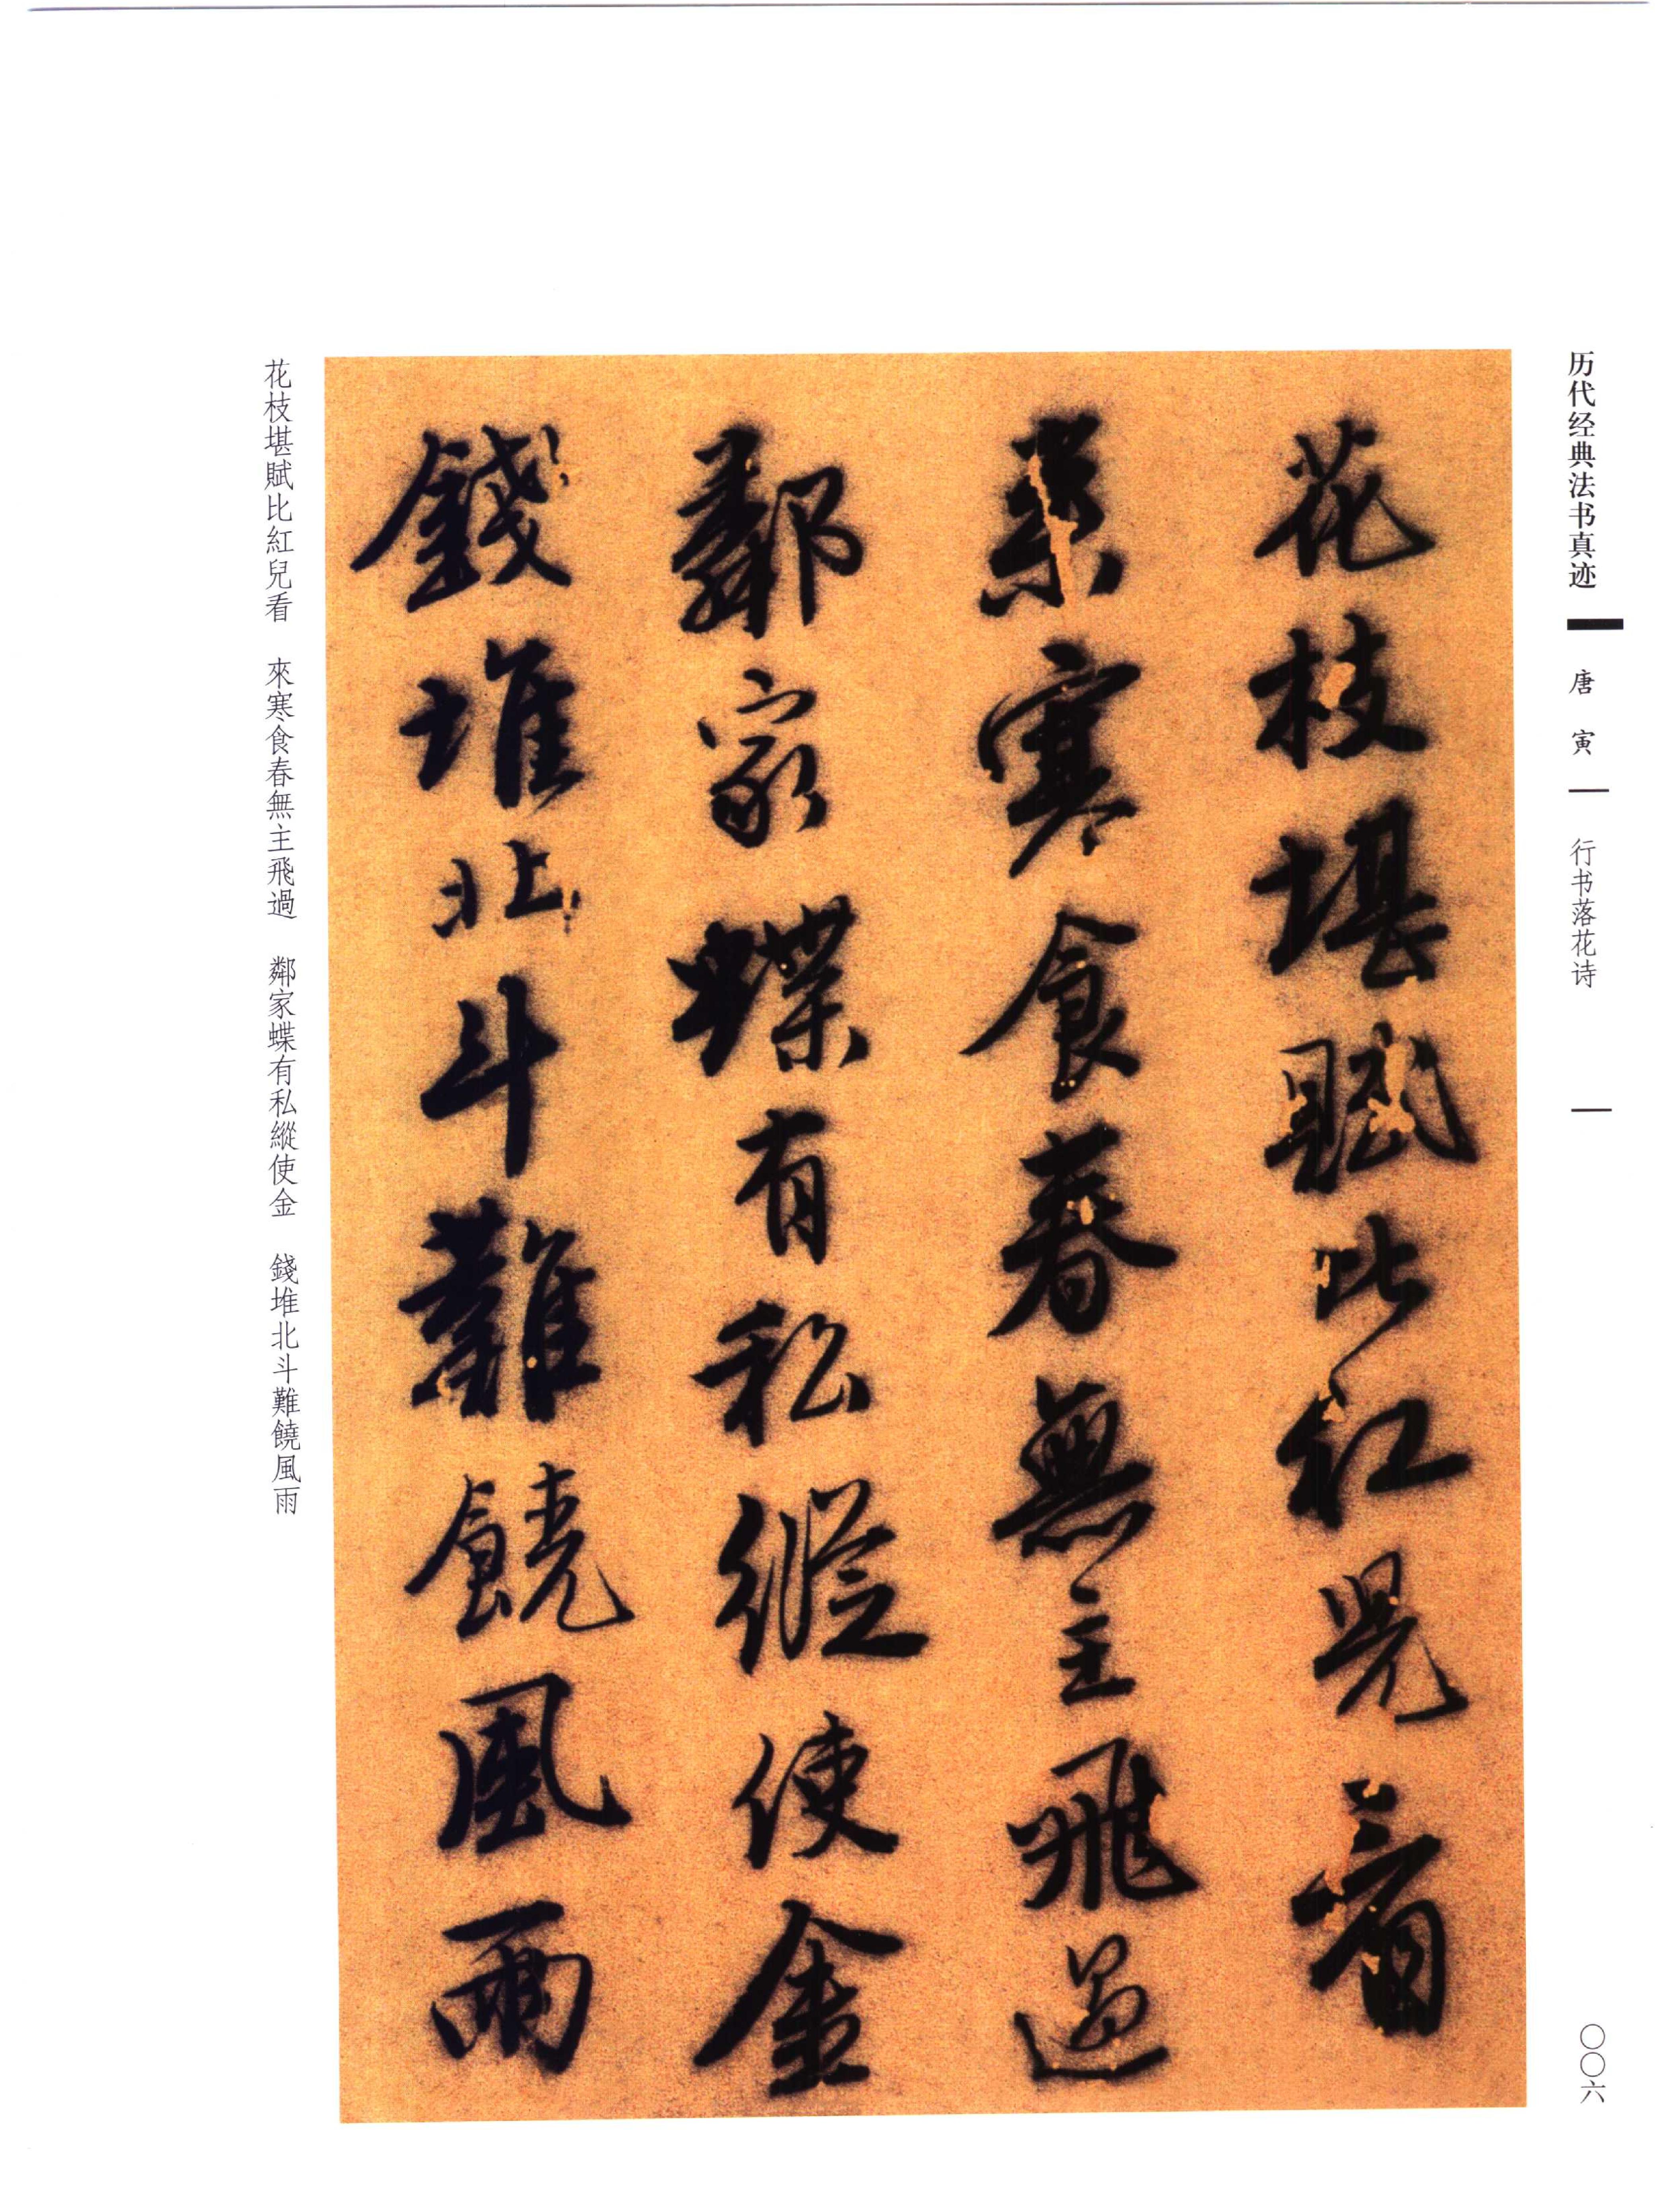 历代经典法书真迹
唐寅
行书落花诗
〇〇六
花枝堪賦比紅兒看
來寒食春無主飛過
鄰家蝶有私縱使金
錢堆北斗難饒風雨
花枝堪賦比紅兒看 來寒食春無主飛過 鄰家蝶有私縱使金 錢堆北斗難饒風雨